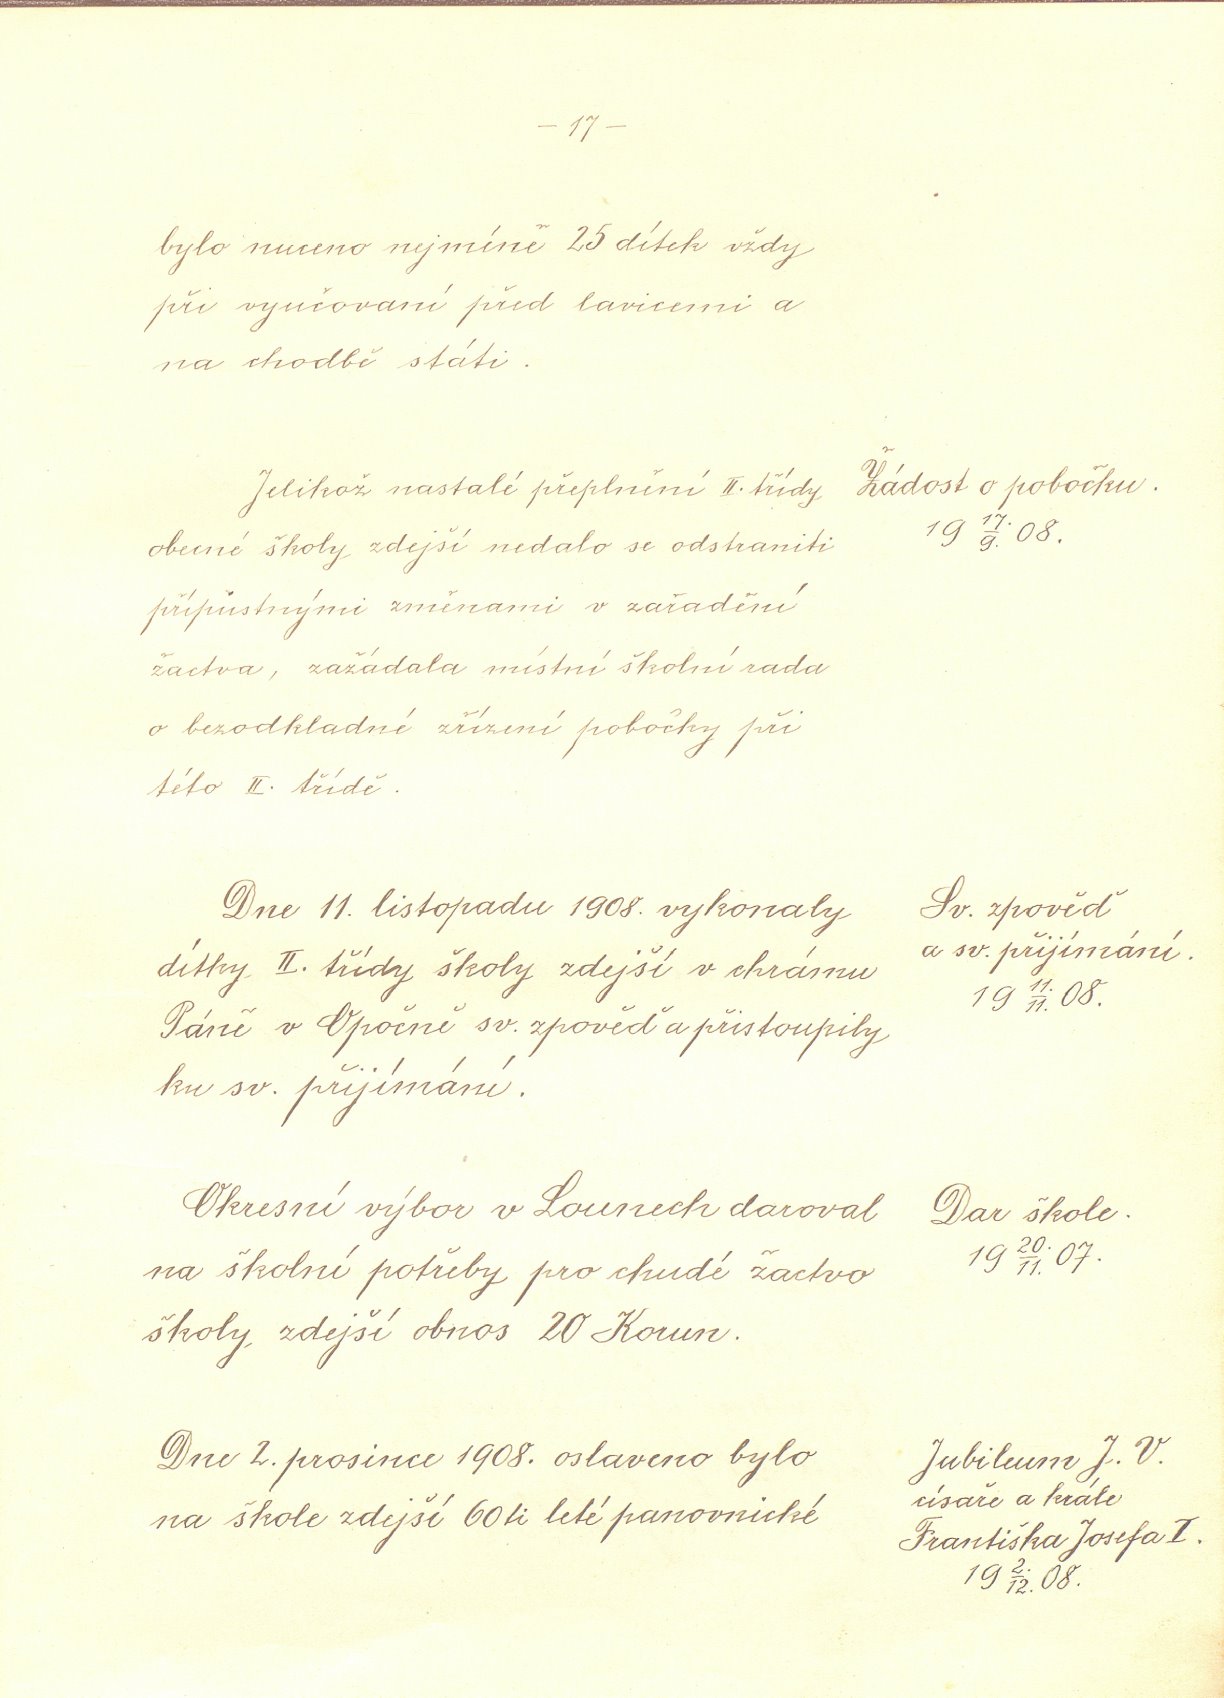 — 17 —
bylo nuceno nejméně 25 dítek vždy
při vyučovaní před lavicemi a
na chodbě státi.
Jelikož nastalé přeplnění II. třídy
obecné školy zdejší nedalo se odstraniti
přípustnými změnami v zařadění
žactva, zažádala místní školní rada
o bezodkladné zřízení pobočky při
této II. třídě.
Žádost o pobočku.
19 17./9. 08.
Dne 11. listopadu 1908. vykonaly
dítky II. třídy školy zdejší v chrámu
Páně v Opočně sv. zpověď a přistoupily
ku sv. přijímání.
Sv. zpověď
a sv. přijímání.
19 11./11. 08.
Okresní výbor v Lounech daroval
na školní potřeby pro chudé žactvo
školy zdejší obnos 20 Korun.
Dar škole.
19 20./11. 07.
Dne 2. prosince 1908. oslaveno bylo
na škole zdejší 60ti leté panovnické
Jubileum J. V.
císaře a krále
Františka Josefa I.
19 2./12. 08.